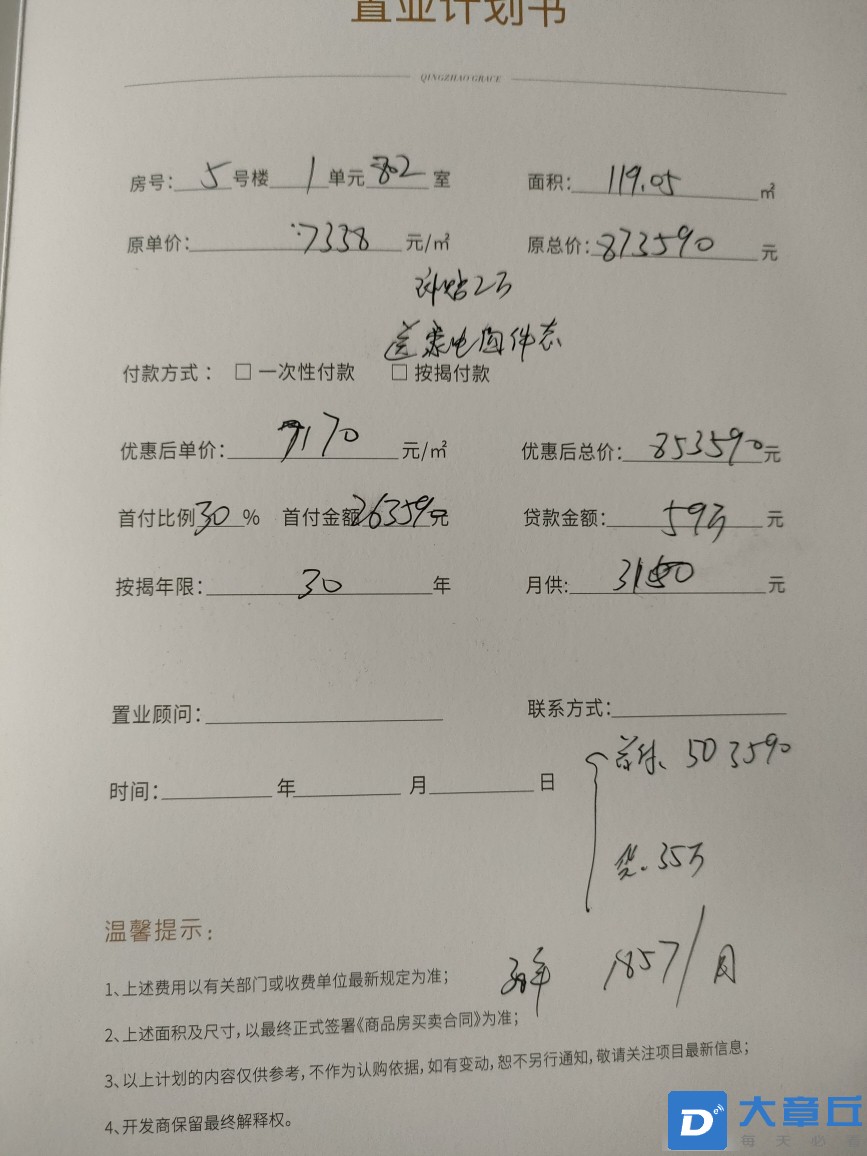 置业计划书
QINGZHAO GRACE
房号: 5 号楼 1 单元 802 室 面积: 119.05 ㎡
原单价: 7338 元/㎡ 原总价: 873590 元
补贴2万
送家电四件套
付款方式： □ 一次性付款 □ 按揭付款
优惠后单价: 7170 元/㎡ 优惠后总价: 853590 元
首付比例 30 % 首付金额 26359 元 贷款金额: 59万 元
按揭年限: 30 年 月供: 3150 元
置业顾问: 联系方式:
时间: 年 月 日
首付. 503590
贷. 35万
温馨提示：
1、上述费用以有关部门或收费单位最新规定为准；
30年 1857/月
2、上述面积及尺寸，以最终正式签署《商品房买卖合同》为准；
3、以上计划的内容仅供参考，不作为认购依据，如有变动，恕不另行通知，敬请关注项目最新信息；
4、开发商保留最终解释权。
大章丘
每天必